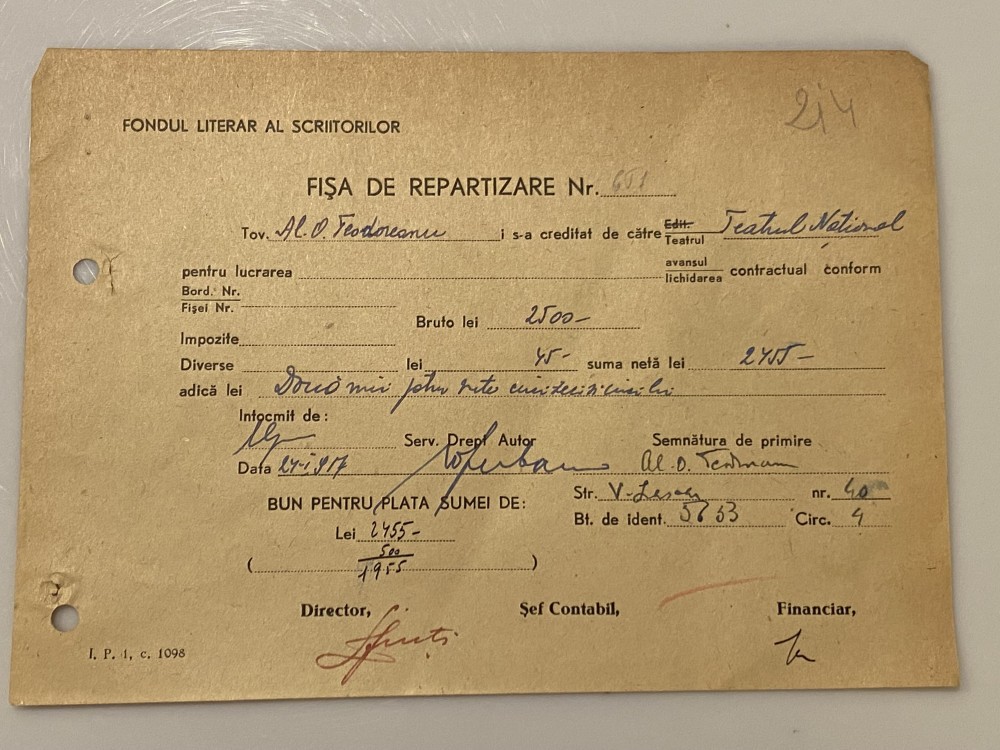 214
FONDUL LITERAR AL SCRIITORILOR
FIȘA DE REPARTIZARE Nr.
Tov. Al. O. Teodoreanu i s-a creditat de către Edit. Teatrul Teatrul Național
pentru lucrarea avansul lichidarea contractual conform
Bord. Nr.
Fișei Nr.
Bruto lei 2500-
Impozite
Diverse lei 45- suma netă lei 2455-
adică lei Două mii patru sute cincizeci și cinci lei
Intocmit de:
Serv. Drept Autor Semnătura de primire
Data 24-I-957 Al. O. Teodoreanu
Str. nr. 40
BUN PENTRU PLATA SUMEI DE:
Bt. de ident. 5753 Circ. 4
Lei 2455-
500
( 1955 )
Director, Șef Contabil, Financiar,
I. P. 1, c. 1098